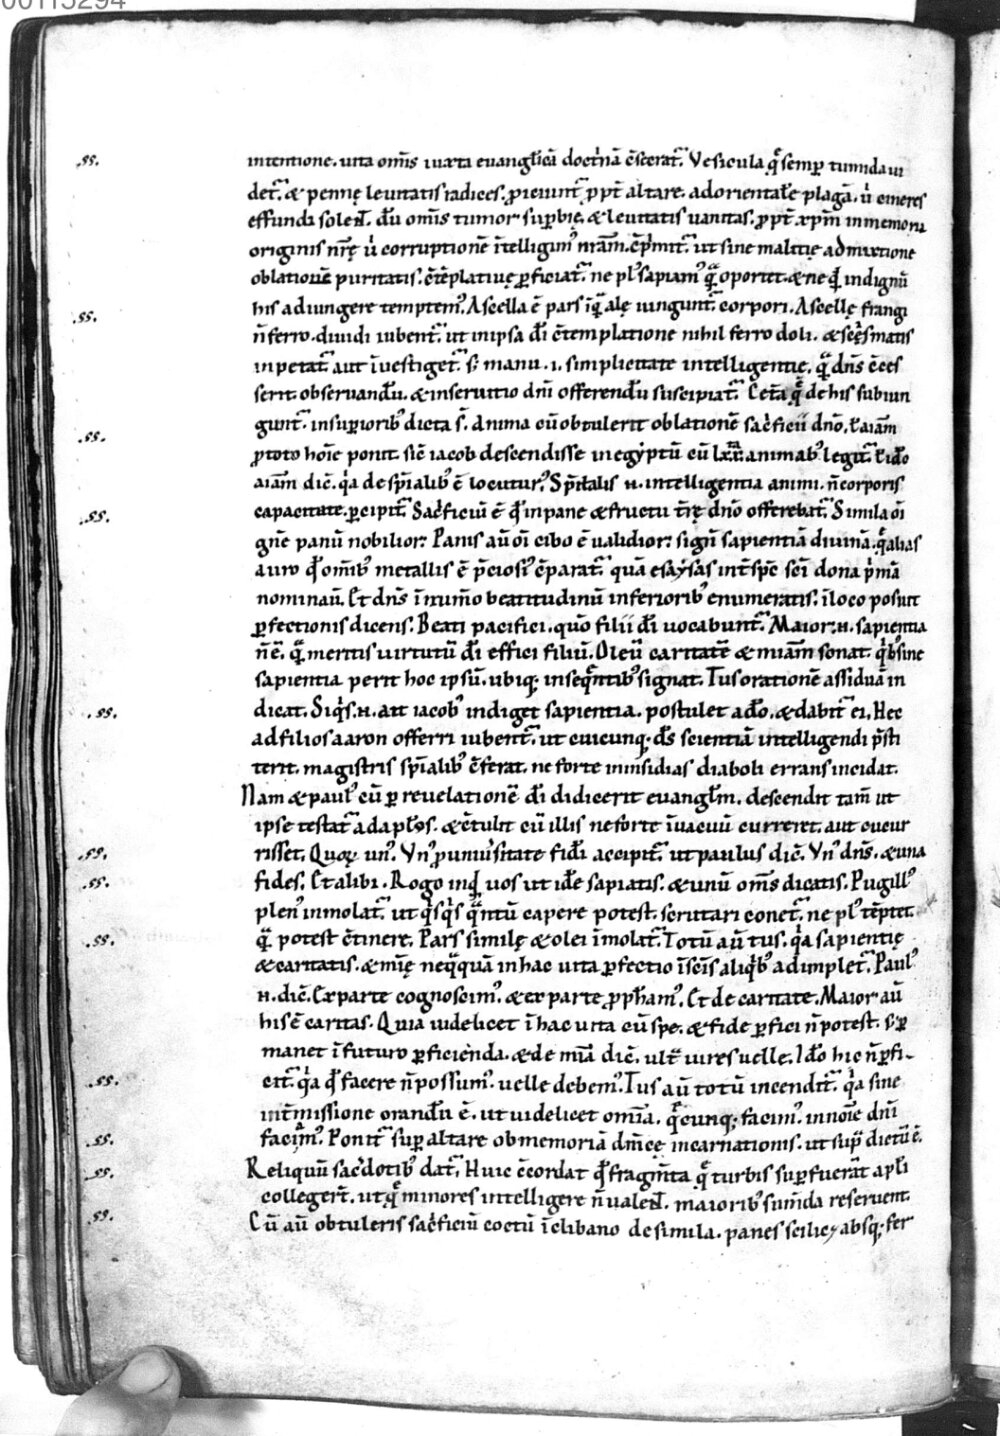 00115294
.ss. intentione. uita om̅is iuxta euangl̅icā doctͥnā c̅secrat᷑. Vesicula q̅ semp̱ tumida ui
det᷑. & pennę leuitatis radices. p̱iciunt᷑ p̱pt̅ altare. ad oriental̅e plagā. u̇ cineres
effundi solen̅t. du̅ om̅is tumor sup̱bię. & leuitatis uanitas. p̱pt̅ xp̅m in memoria
originis nr̅ę u̇ corruptionē i̅telligimꝰ nr̅am. c̅p̱mit᷑. ut sine malitię admixtione
oblationē puritatis. c̅te̅platiuę p̱ficiat᷑. ne plꝰ sapiamꝰ qͣ̅ oportet. & ne qͥd indignū
.ss. his adiungere temptemꝰ. Ascella ē pars i̅ qͣ alę iungunt᷑ corpori. Ascellę frangi
n̅ ferro. diuidi iubent᷑. ut in ipsa di̅ c̅templatione nihil ferro doli. & scęsmatis
inpetat᷑ aut i̅uestiget᷑. s; manu .i. simplicitate intelligentię. qͣ̅ dn̅s c̅ces
serit obseruandū. & in seruitio dn̅i offerendū suscipiat᷑. Cet̅a q̅ de his subiun
gunt᷑. in sup̱ioribꝰ dicta s̅. Anima cū obtulerit oblationē sac̍ficii dn̅o. t̅ aiam̅
.ss. p̱ toto hoīe ponit. sic̅ iacob descendisse in egẏptū cū lxx. animabꝰ legit᷑. t̅ ido̅
aiam̅ dic̅. qͥa de sp̅ialibꝰ ē locuturꝰ. Sp̅italis n̅. intelligentia animi. n̅ corporis
.ss. capacitate. p̱cipit᷑. Sac̍ficiū ē qd̅ in pane & fructu tr̅ę dn̅o offerebat᷑. Simila oi̅
gn̅e panū nobilior. Panis au̅ oi̅ cibo ē ualidior. sign̅ sapientiā diuinā. qͣ̅ alias
auro qd̅ om̅ibꝰ metallis ē p̅ciosiꝰ c̅parat᷑. quā esaẏsas int̅ sp̅c sc̅i dona pͥmā
nominau̅. Et dn̅s i̅ numo̅ beatitudinū inferioribꝰ enumeratis. i̅ loco posuit
p̱fectionis dicens. Beati pacifici. quo̅ filii di̅ uocabunt᷑. Maior .n. sapientia
n̅ ē. qͣ̅ meritis uirtutū di̅ effici filiū. Oleū caritatē & miam̅ sonat. qͥbꝰ sine
sapientia perit hoc ipsū. ubiq; in seqͣntibꝰ signat. Tus orationē assiduā in
.ss. dicat. Siqͥs .n. ait iacobꝰ indiget sapientia. postulet a do̅. & dabit᷑ ei. Hec
ad filios aaron offerri iubent᷑. ut cuicunq; ds̅ scientiā intelligendi p̅sti
terit. magistris sp̅ialibꝰ c̅ferat. ne forte in insidias diaboli errans incidat.
Nam & paulꝰ cū p̱ reuelationē di̅ didicerit euangl̅m. descendit tam̅ ut
ipse testat᷑ ad apl̅os. & c̅tulit cū illis ne forte i̅ uacuū curreret. aut cucur
.ss. risset. Quoꝝ unꝰ. Vnꝰ p̱ uniuͥsitate fidi̅ accipit᷑. ut paulus dic̅. Vnꝰ dn̅s. & una
.ss. fides. Et alibi. Rogo inqͥd uos ut ide̅ sapiatis. & unū om̅s dicatis. Pugillꝰ
plenꝰ inmolat᷑. ut qͥsqͥs qͣ̅ntū capere potest. scrutari conet᷑. ne plꝰ te̅ptet.
.ss. qͣ̅ potest c̅tinere. Pars similę & olei i̅molat᷑. Totū au̅ tus. qͥa sapientię
& caritatis. & mi̅ę neqͣ̅quā in hac uita p̱fectio i̅ sc̅is aliqͥbꝰ adimplet᷑. Paulꝰ
.n. dic̅. Ex parte cognoscimꝰ. & ex parte p̱ph̅amꝰ. Et de caritate. Maior au̅
his ē caritas. Quia uidelicet i̅ hac uita cū spe. & fide p̱fici n̅ potest. s; p̱
manet i̅ futuro p̱ficienda. & de mi̅a dic̅. ult̅ uires uelle. Ido̅ hic n̅ p̱fi-
.ss. cit᷑. qͥa qd̅ facere n̅ possumꝰ. uelle debemꝰ. Tus au̅ totū incendit᷑. qͥa sine
int̅missione orandū ē. ut uidelicet om̅ia. q̅cunq; facimꝰ. in noi̅e dn̅i
.ss. faciamꝰ. Ponit᷑ sup̱ altare ob memoriā dn̅icę incarnationis. ut supͣ dictū ē.
.ss. Reliquū sac̍dotibꝰ dat᷑. Huic c̅cordat qd̅ fragm̅ta q̅ turbis sup̱fuerāt apl̅i
collegert̅. ut q̅ minores intelligere n̅ ualen̅t. maioribꝰ sum̅da reseruent.
.ss. Cū au̅ obtuleris sac̍ficiū coctū i̅ clibano de simila. panes scilic; absq; fer